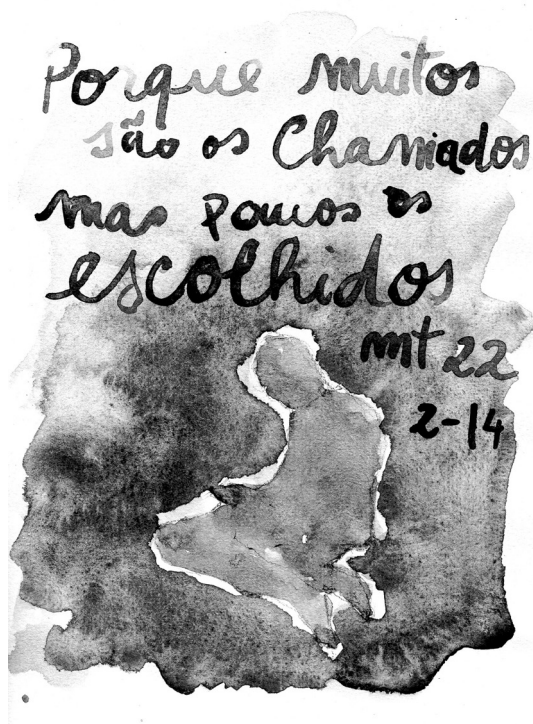 Porque muitos
são os Chamados
mas poucos os
escolhidos
mt 22
2-14